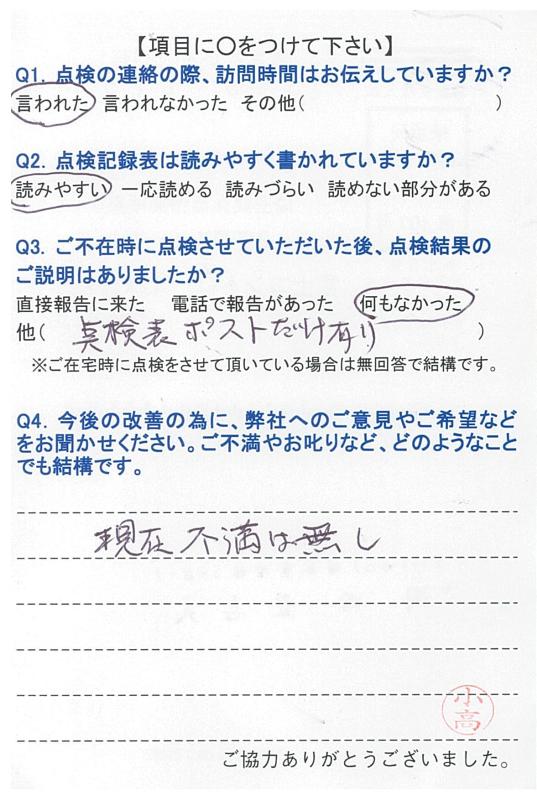 【項目に〇をつけて下さい】
Q1. 点検の連絡の際、訪問時間はお伝えしていますか?
言われた 言われなかった その他( )
Q2. 点検記録表は読みやすく書かれていますか?
読みやすい 一応読める 読みづらい 読めない部分がある
Q3. ご不在時に点検させていただいた後、点検結果の
ご説明はありましたか?
直接報告に来た 電話で報告があった 何もなかった
他( 点検表ポストだけ有り )
※ご在宅時に点検をさせて頂いている場合は無回答で結構です。
Q4. 今後の改善の為に、弊社へのご意見やご希望など
をお聞かせください。ご不満やお叱りなど、どのようなこと
でも結構です。
現在不満は無し
小高
ご協力ありがとうございました。